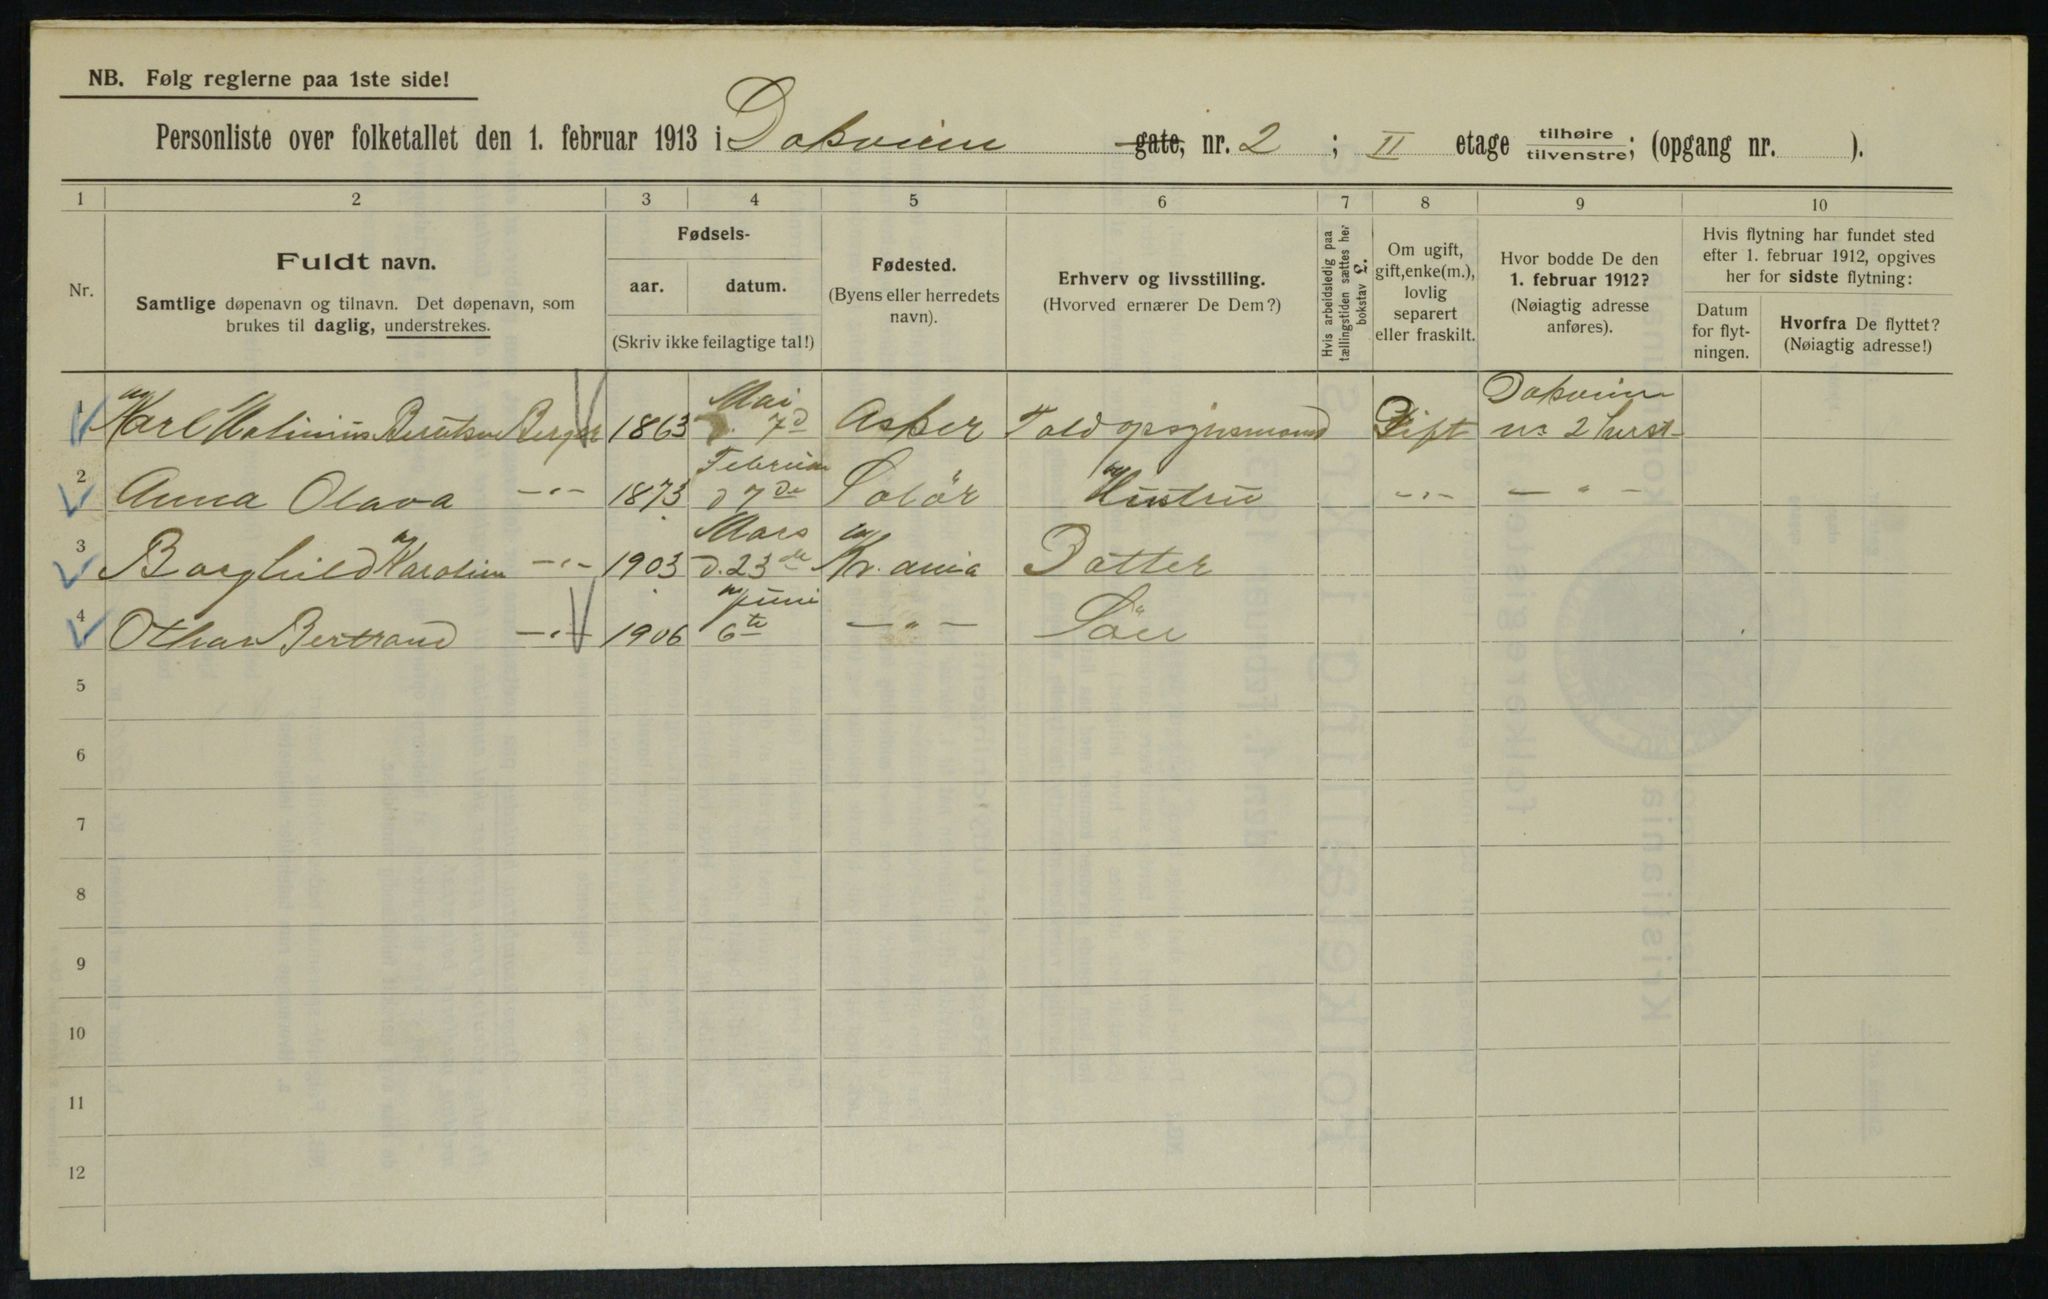 NB. Følg reglerne paa 1ste side!
Personliste over folketallet den 1. februar 1913 i Dokveien gate, nr. 2 ; II etage tilhøire tilvenstre; (opgang nr. ).
1 2 3 4 5 6 7 8 9 10
Nr.
Fuldt navn.
Samtlige døpenavn og tilnavn. Det døpenavn, som
brukes til daglig, understrekes.
Fødsels-
aar. datum.
(Skriv ikke feilagtige tal!)
Fødested.
(Byens eller herredets
navn).
Erhverv og livsstilling.
(Hvorved ernærer De Dem?)
Hvis arbeidsledig paa
tællingstiden sættes her
bokstav l.
Om ugift,
gift, enke(m.),
lovlig
separert
eller fraskilt.
Hvor bodde De den
1. februar 1912?
(Nøiagtig adresse
anføres).
Hvis flytning har fundet sted
efter 1. februar 1912, opgives
her for sidste flytning:
Datum
for flyt-
ningen.
Hvorfra De flyttet?
(Nøiagtig adresse!)
1 Karl Berger 1863 Mai d. 7d Asker Toldopsynsmand Gift Dokveien nr 2
2 Anna Olava -"- 1873 Februar d 7de Solör Hustru -"- -"-
3 Borghild Karoline -"- 1903 Mars d. 23de Kr.ania Datter
4 Othar Bertrand -"- 1906 Juni 6te -"- Sön
5
6
7
8
9
10
11
12